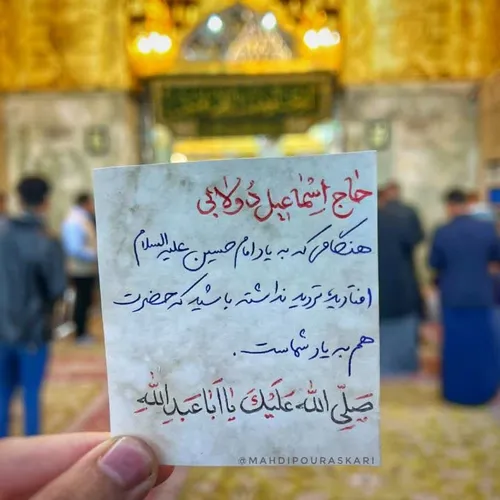 حٰاج اِسْمٰاعیل دُولٰابی
هنگامی که به یاد امام حسین علیه السلام
افتادید، تردید نداشته باشید که حضرت
هم به یاد شماست.
صَلَّی اللهُ عَلَیْکَ یٰا اَبٰا عَبدِ اللهِ
@MAHDIPOURASKARI